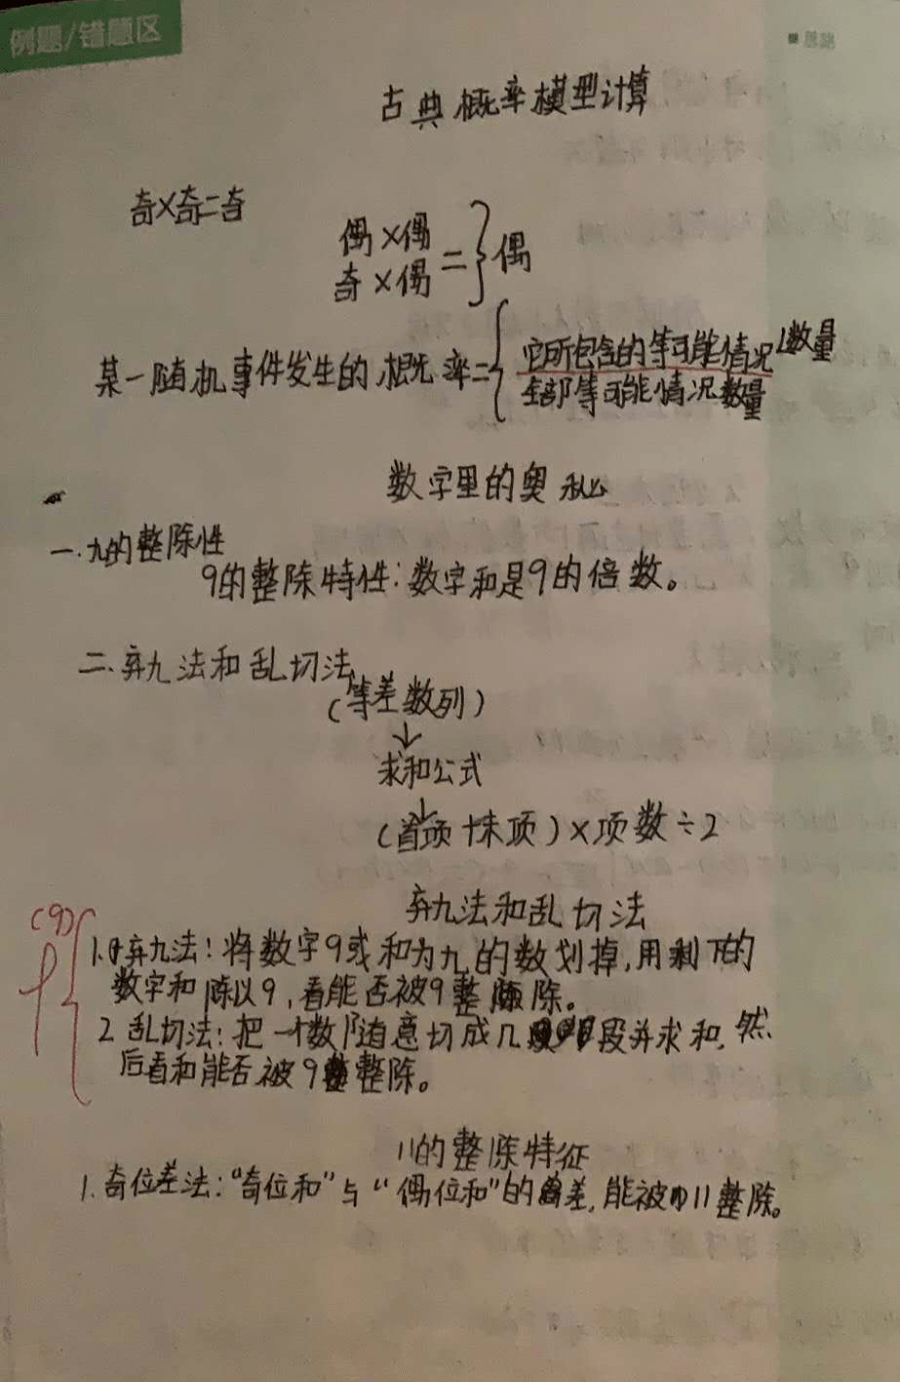 例题/错题区
古典概率模型计算
奇×奇=奇
偶×偶
奇×偶
=}偶
某一随机事件发生的概率={
它所包含的等可能情况数量
全部等可能情况数量
数字里的奥秘
一.九的整除性
9的整除特性:数字和是9的倍数。
二.弃九法和乱切法
(等差数列)
↓
求和公式
↓
(首项+末项)×项数÷2
弃九法和乱切法
(9)
1.弃九法:将数字9或和为九的数划掉,用剩下的
数字和除以9,看能否被9整除。
2.乱切法:把一个数随意切成几段并求和,然
后看和能否被9整除。
11的整除特征
1.奇位差法:“奇位和”与“偶位和”的差,能被11整除。